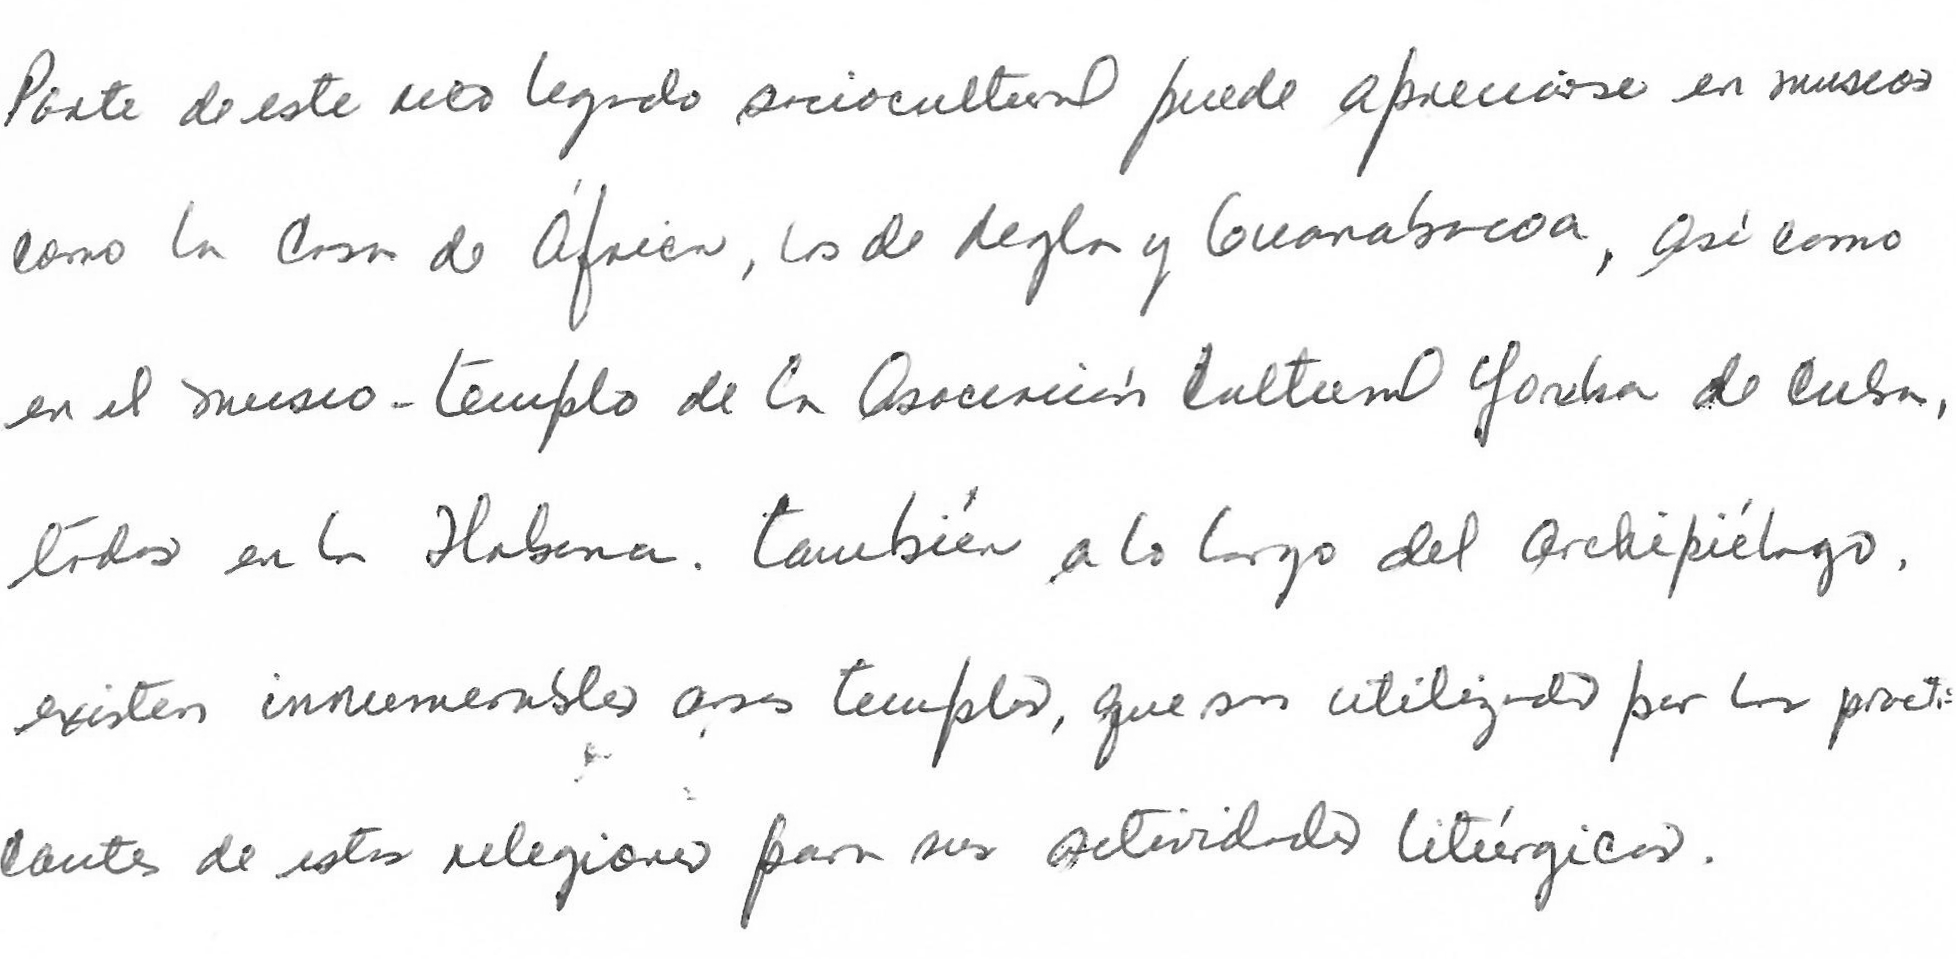 Parte de este rico legado sociocultural puede apreciarse en museos
como la Casa de África, los de Regla y Guanabacoa, así como
en el museo-templo de la Asociación Cultural Yoruba de Cuba,
todos en la Habana. También a lo largo del archipiélago.
existen innumerables casas templos, que son utilizados por los practi-
cantes de estas religiones para sus actividades litúrgicas.